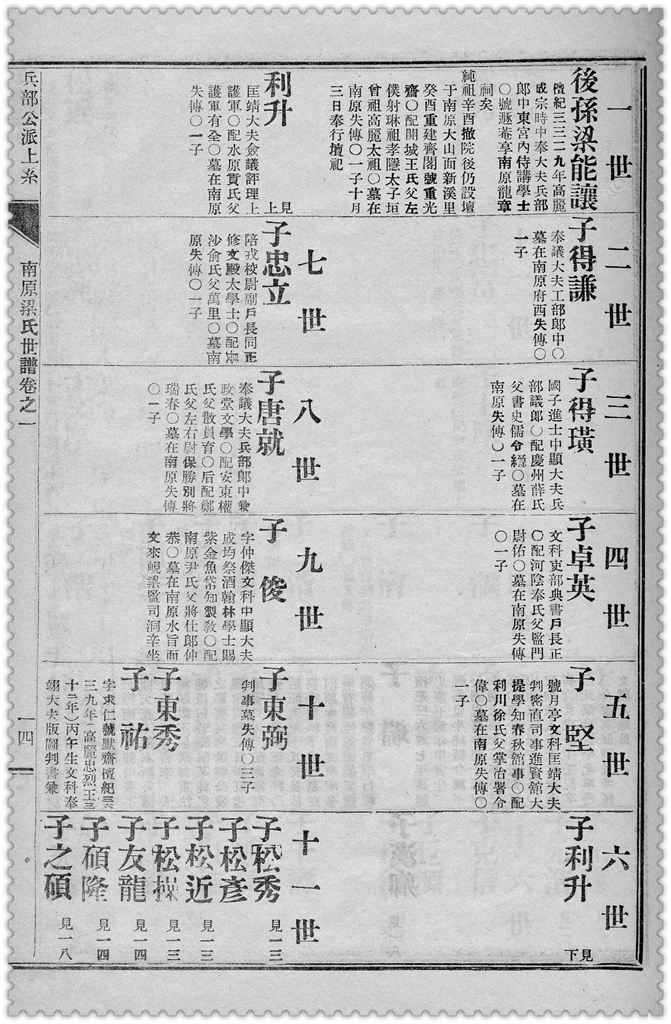 一世
後孫梁能讓
檀紀三三二九年高麗
成宗時中奉大夫兵部
郎中東宮內侍講學士
○號遯菴享南原龍章
祠矣
純祖辛酉撤院後仍設壇
于南原大山面新溪里
癸酉重建齋閣號重光
齋○配開城王氏父左
僕射琳祖孝隱太子垣
曾祖高麗太祖○墓在
南原失傳○一子十月
三日奉行壇祀
二世
子得謙
奉議大夫工部郎中○
墓在南原府西失傳○
一子
三世
子得璜
國子進士中顯大夫兵
部議郎○配慶州薛氏
父書史儒令○墓在
南原失傳○一子
四世
子卓英
文科吏部典書戶長正
○配河陰奉氏父監門
尉佑○墓在南原失傳
○一子
五世
子堅
號月亭文科匡靖大夫
判密直司事進賢館大
提學知春秋館事○配
利川徐氏父掌冶署令
偉○墓在南原失傳○
一子
六世
子利升 見下
利升 見上
匡靖大夫僉議評理上
護軍○配水原貢氏父
護軍有全○墓在南原
失傳○一子
七世
子忠立
陪戎校尉副戶長同正
修文殿太學士○配
沙俞氏父萬里○墓南
原失傳○一子
八世
子唐就
奉議大夫兵部郎中兼
政堂文學○配安東權
氏父散員育○后配鄭
氏父左右尉保勝別將
瑞春○墓在南原失傳
○一子
九世
子俊
字仲傑文科中顯大夫
成均祭酒翰林學士賜
紫金魚帒知製敎○配
南原尹氏父將仕郎仲
恭○墓在南原水旨面
文來峴梁監司洞辛坐
十世
子東弼
判事墓失傳○三子
子東秀
子祐
字求仁號默齋檀紀三六
三九年(高麗忠烈王三
十二年)丙午生文科奉
翊大夫版圖判書兼
十一世
子松秀 見一三
子松彥
子松近 見一三
子松操 見一三
子友龍 見一四
子碩隆 見一四
子之碩 見一八
兵部公派上系
南原梁氏世譜卷之一
一四